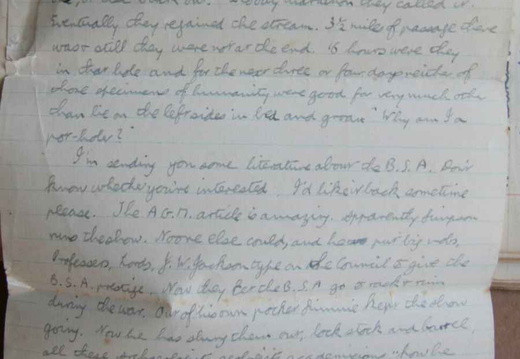 Eventually they regained the stream. 3½ miles of passage there
was & still they were not at the end. 15 hours were they
in that hole and for the next three or four days neither of
those specimens of humanity were good for very much other
than lie on their left sides in bed and groan "Why am I a
pot-holer?"
I'm sending you some literature about the B.S.A. Don't
know whether you're interested. I'd like it back sometime
please. The A.G.M. article is amazing. Apparently Simpson
runs the show. No one else could, and he put big nobs,
Professors, Lords, J.W. Jackson type on the Council to give the
B.S.A. prestige. Now they let the B.S.A. go to rack & ruin
during the war. Out of his own pocket Simmie kept the show
going. Now he has slung them out, lock stock and barrel,
all these